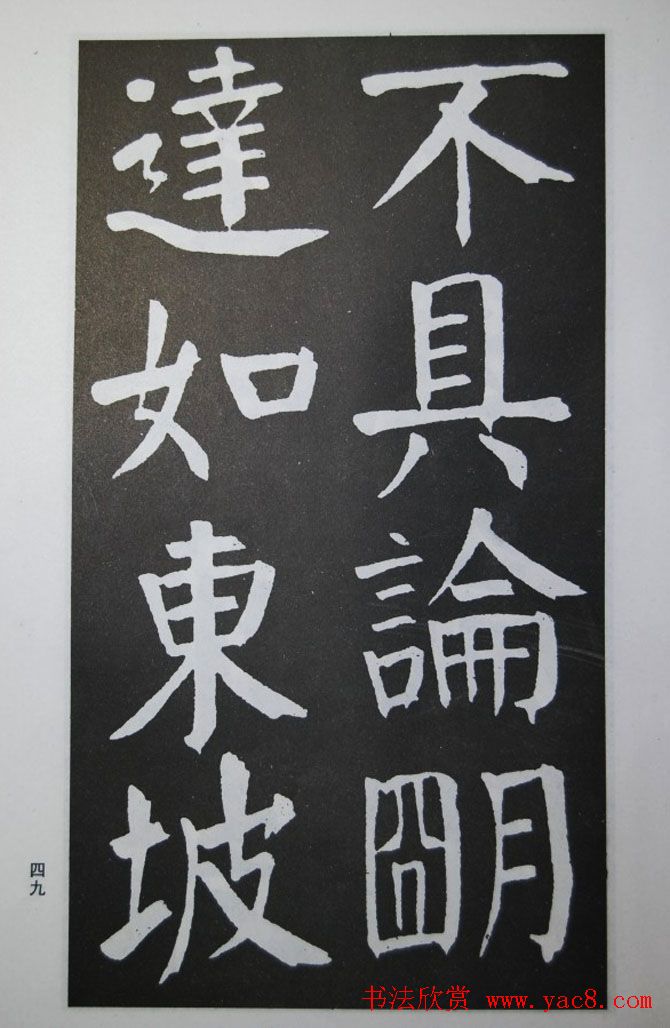 不具論明
達如東坡
四九
书法欣赏 www.yac8.com